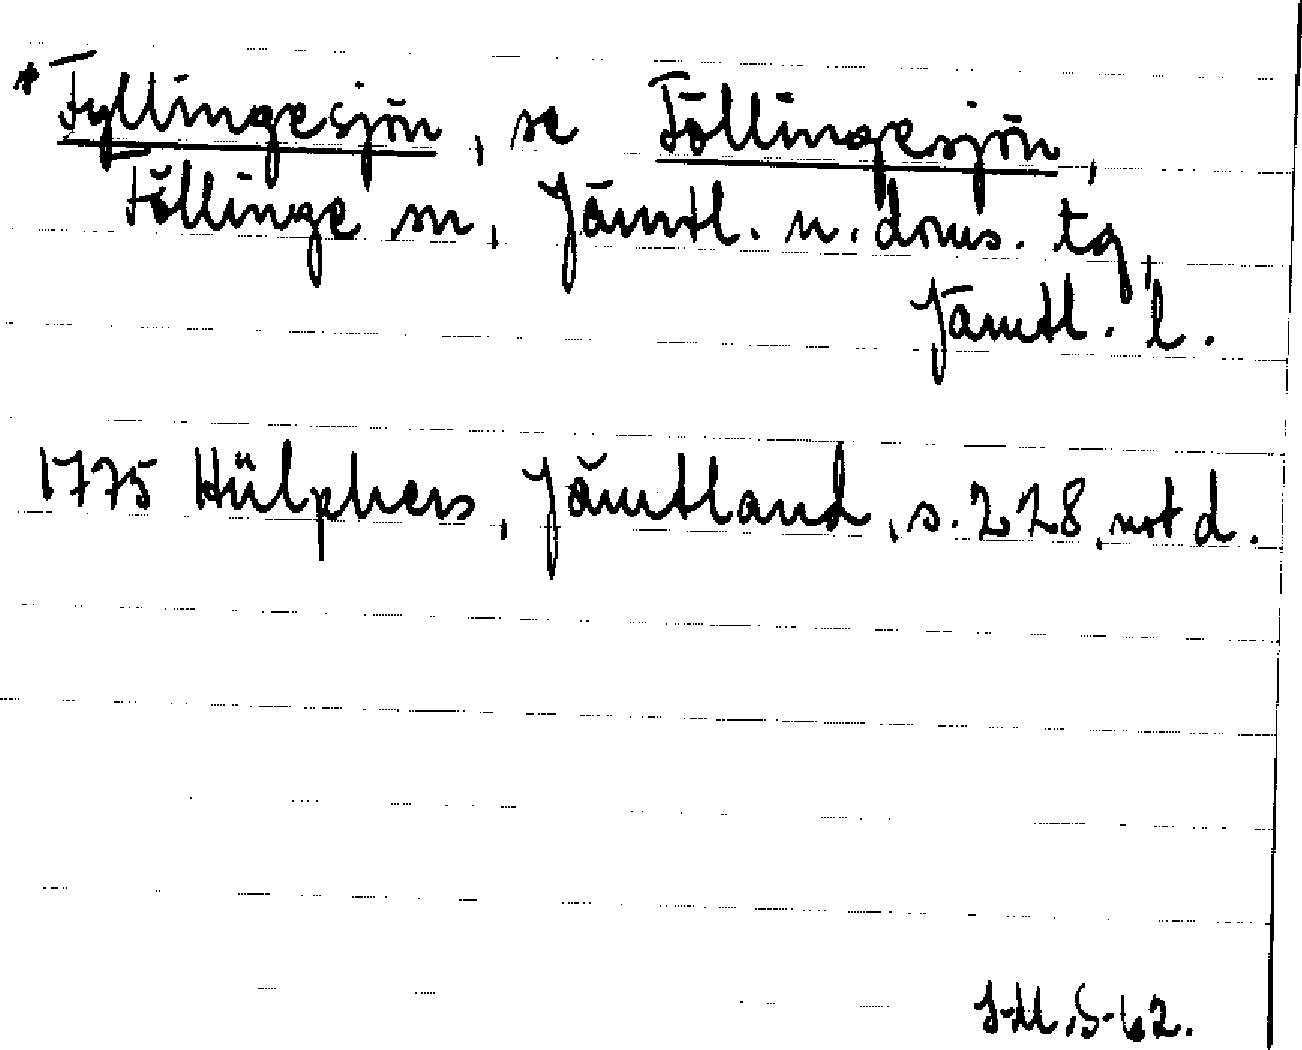 * Fyllingesjön, se Föllingesjön,
Föllinge sn, Jämtl. n. doms. tg,
Jämtl. l.
1775 Hülphers, Jämtland, s. 228, not d.